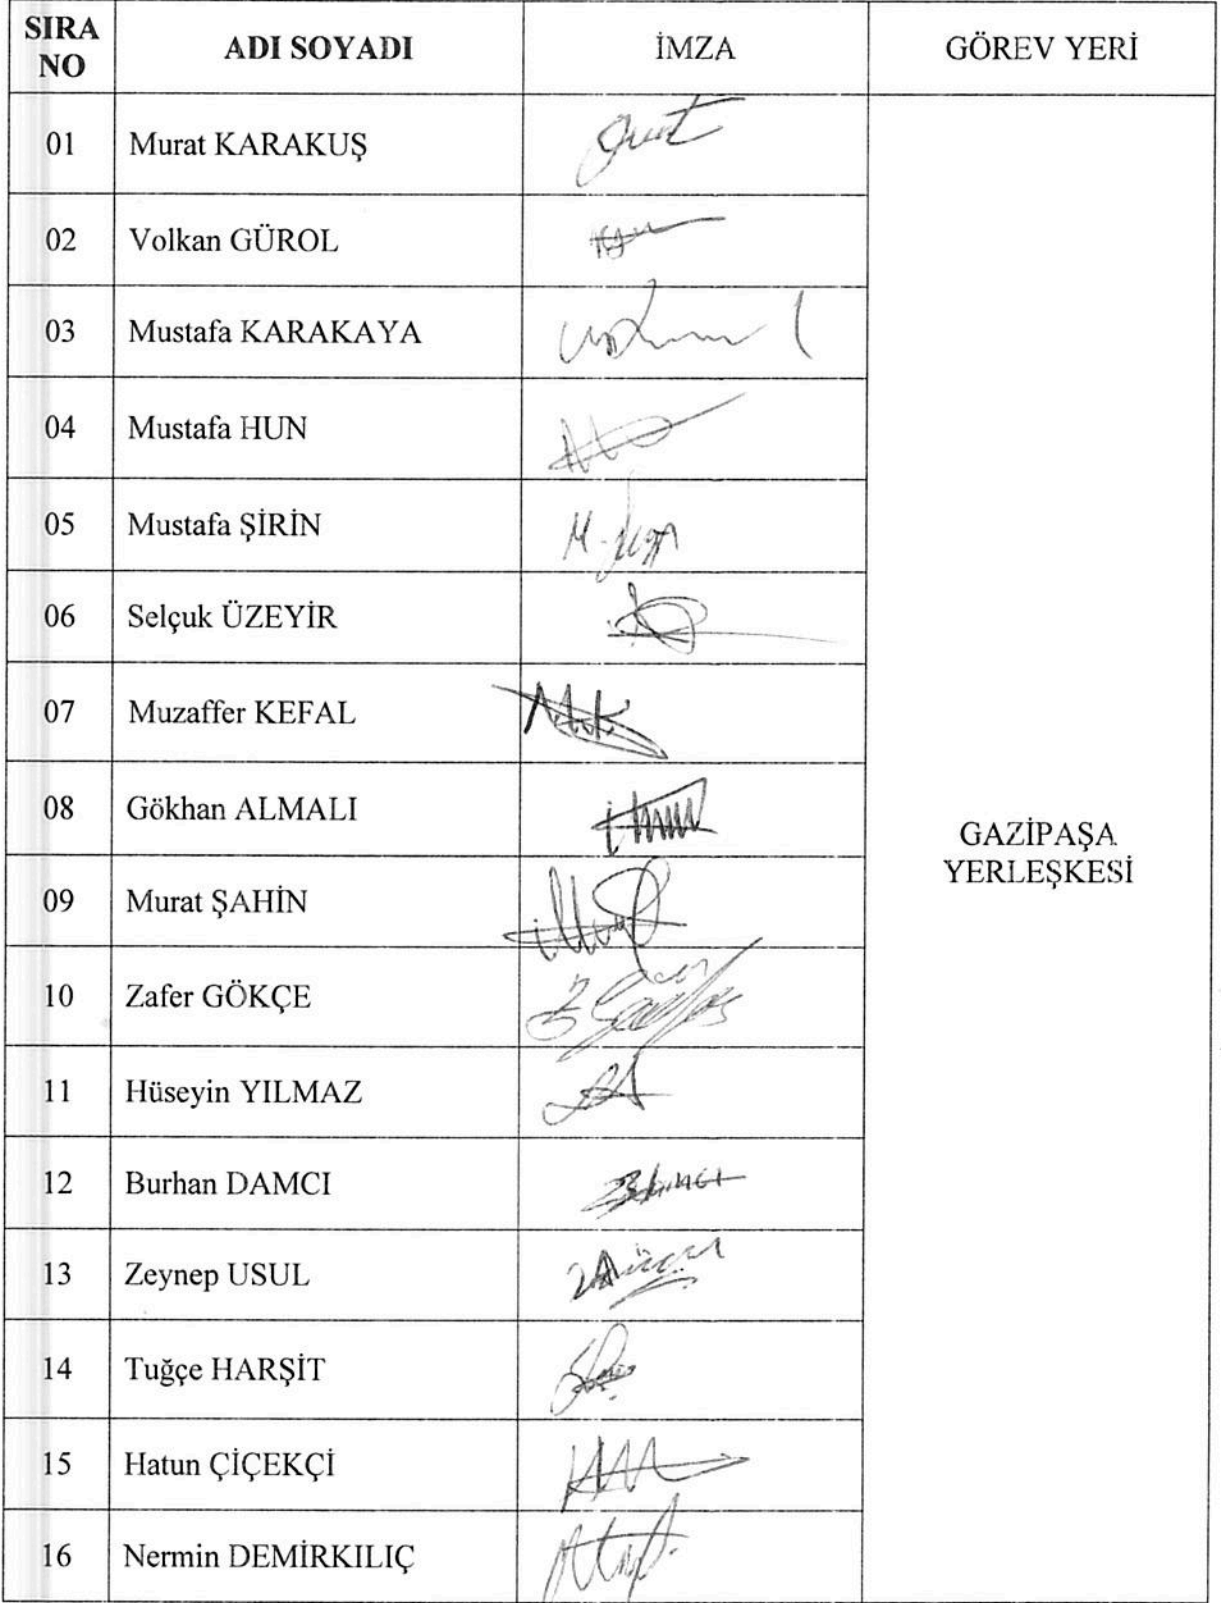 SIRA NO ADI SOYADI İMZA GÖREV YERİ
01 Murat KARAKUŞ
02 Volkan GÜROL
03 Mustafa KARAKAYA
04 Mustafa HUN
05 Mustafa ŞİRİN
06 Selçuk ÜZEYİR
07 Muzaffer KEFAL
08 Gökhan ALMALI
09 Murat ŞAHİN
10 Zafer GÖKÇE
11 Hüseyin YILMAZ
12 Burhan DAMCI
13 Zeynep USUL
14 Tuğçe HARŞİT
15 Hatun ÇİÇEKÇİ
16 Nermin DEMİRKILIÇ
GAZİPAŞA
YERLEŞKESİ